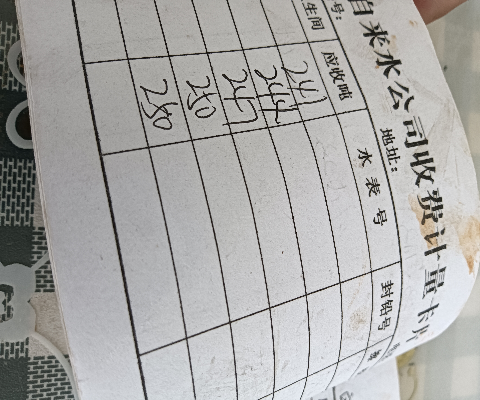 自来水公司收费计量卡片
号: 地址:
生间 应收吨 水表号 封铅号
241
244
247
250
250